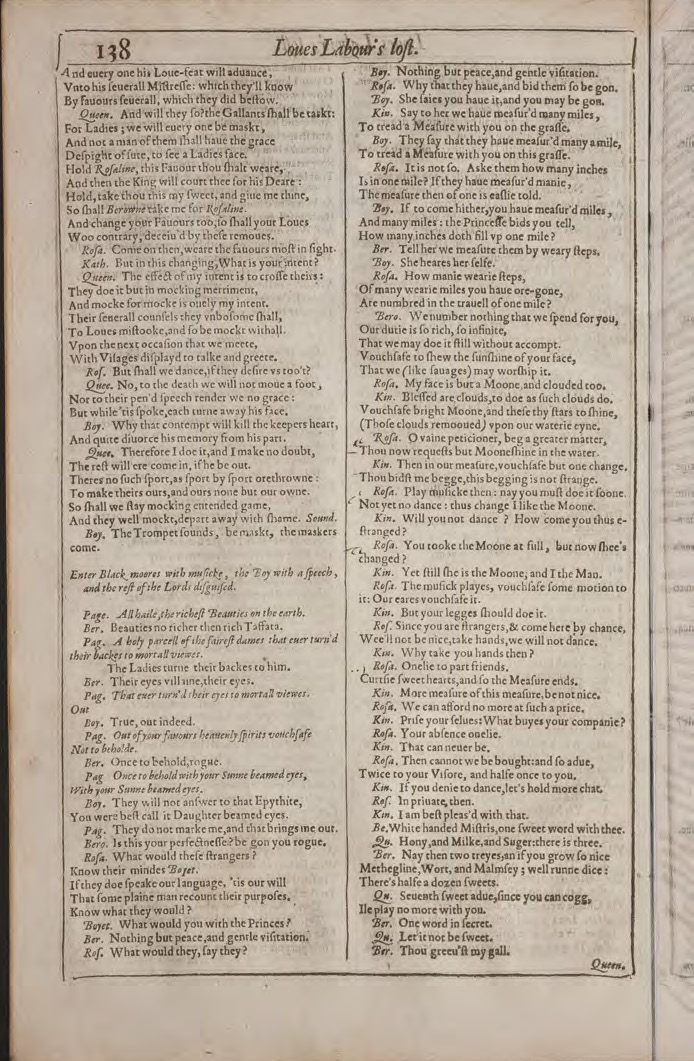 138
Loues Labour's lost.
And euery one his Loue-feat will aduance,
Vnto his seuerall Mistresse: which they'll know
By fauours seuerall, which they did bestow.
Queen. And will they so? the Gallants shall be taskt:
For Ladies; we will euery one be maskt,
And not a man of them shall haue the grace
Despight of sute, to see a Ladies face.
Hold Rosaline, this Fauour thou shalt weare,
And then the King will court thee for his Deare:
Hold, take thou this my sweet, and giue me thine,
So shall Berowne take me for Rosaline.
And change your Fauours too, so shall your Loues
Woo contrary, deceiu'd by these remoues.
Rosa. Come on then, weare the fauours most in sight.
Kath. But in this changing, What is your intent?
Queen. The effect of my intent is to crosse theirs:
They doe it but in mocking merriment,
And mocke for mocke is onely my intent.
Their seuerall counsels they vnbosome shall,
To Loues mistooke, and so be mockt withall.
Vpon the next occasion that we meete,
With Visages displayd to talke and greete.
Ros. But shall we dance, if they desire vs too't?
Quee. No, to the death we will not moue a foot,
Nor to their pen'd speech render we no grace:
But while 'tis spoke, each turne away his face.
Boy. Why that contempt will kill the keepers heart,
And quite diuorce his memory from his part.
Quee. Therefore I doe it, and I make no doubt,
The rest will ere come in, if he be out.
Theres no such sport, as sport by sport orethrowne:
To make theirs ours, and ours none but our owne.
So shall we stay mocking entended game,
And they well mockt, depart away with shame. Sound.
Boy. The Trompet sounds, be maskt, the maskers
come.
Enter Black moores with musicke, the Boy with a speech,
and the rest of the Lords disguised.
Page. All haile, the richest Beauties on the earth.
Ber. Beauties no richer then rich Taffata.
Pag. A holy parcell of the fairest dames that euer turn'd
their backes to mortall viewes.
The Ladies turne their backes to him.
Ber. Their eyes villaine, their eyes.
Pag. That euer turn'd their eyes to mortall viewes.
Out
Boy. True, out indeed.
Pag. Out of your fauours heauenly spirits vouchsafe
Not to beholde.
Ber. Once to behold, rogue.
Pag Once to behold with your Sunne beamed eyes,
With your Sunne beamed eyes.
Boy. They will not answer to that Epythite,
You were best call it Daughter beamed eyes.
Pag. They do not marke me, and that brings me out.
Bero. Is this your perfectnesse? be gon you rogue.
Rosa. What would these strangers?
Know their mindes Boyet.
If they doe speake our language, 'tis our will
That some plaine man recount their purposes.
Know what they would?
Boyet. What would you with the Princes?
Ber. Nothing but peace, and gentle visitation.
Ros. What would they, say they?
Boy. Nothing but peace, and gentle visitation.
Rosa. Why that they haue, and bid them so be gon.
Boy. She saies you haue it, and you may be gon.
Kin. Say to her we haue measur'd many miles,
To tread a Measure with you on the grasse.
Boy. They say that they haue measur'd many a mile,
To tread a Measure with you on this grasse.
Rosa. It is not so. Aske them how many inches
Is in one mile? If they haue measur'd manie,
The measure then of one is easlie told.
Boy. If to come hither, you haue measur'd miles,
And many miles: the Princesse bids you tell,
How many inches doth fill vp one mile?
Ber. Tell her we measure them by weary steps.
Boy. She heares her selfe.
Rosa. How manie wearie steps,
Of many wearie miles you haue ore-gone,
Are numbred in the trauell of one mile?
Bero. We number nothing that we spend for you,
Our dutie is so rich, so infinite,
That we may doe it still without accompt.
Vouchsafe to shew the sunshine of your face,
That we (like sauages) may worship it.
Rosa. My face is but a Moone, and clouded too.
Kin. Blessed are clouds, to doe as such clouds do.
Vouchsafe bright Moone, and these thy stars to shine,
(Those clouds remooued) vpon our waterie eyne.
Rosa. O vaine peticioner, beg a greater matter,
Thou now requests but Mooneshine in the water.
Kin. Then in our measure, vouchsafe but one change.
Thou bidst me begge, this begging is not strange.
Rosa. Play musicke then: nay you must doe it soone.
Not yet no dance: thus change I like the Moone.
Kin. Will you not dance? How come you thus e-
stranged?
Rosa. You tooke the Moone at full, but now shee's
changed?
Kin. Yet still she is the Moone, and I the Man.
Rosa. The musick playes, vouchsafe some motion to
it: Our eares vouchsafe it.
Kin. But your legges should doe it.
Ros. Since you are strangers, & come here by chance,
Wee'll not be nice, take hands, we will not dance.
Kin. Why take you hands then?
Rosa. Onelie to part friends.
Curtsie sweet hearts, and so the Measure ends.
Kin. More measure of this measure, be not nice.
Rosa. We can afford no more at such a price.
Kin. Prise your selues: What buyes your companie?
Rosa. Your absence onelie.
Kin. That can neuer be.
Rosa. Then cannot we be bought: and so adue,
Twice to your Visore, and halfe once to you.
Kin. If you denie to dance, let's hold more chat.
Ros. In priuate then.
Kin. I am best pleas'd with that.
Be. White handed Mistris, one sweet word with thee.
Qu. Hony, and Milke, and Suger: there is three.
Ber. Nay then two treyes, an if you grow so nice
Methegline, Wort, and Malmsey; well runne dice:
There's halfe a dozen sweets.
Qu. Seuenth sweet adue, since you can cogg,
Ile play no more with you.
Ber. One word in secret.
Qu. Let it not be sweet.
Ber. Thou greeu'st my gall.
Queen.